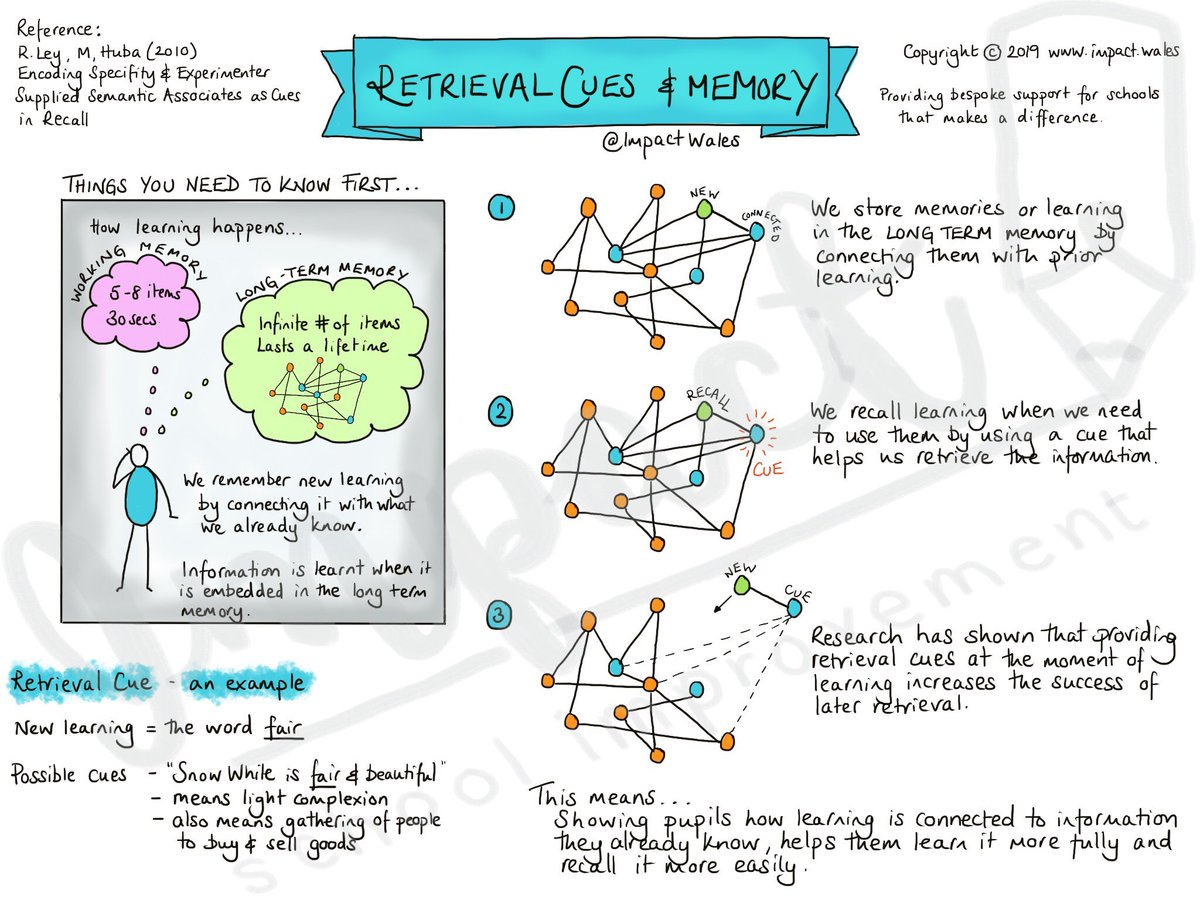 Reference:
R.Ley, M, Huba (2010)
Encoding Specifity & Experimenter
Supplied Semantic Associates as Cues
in Recall
RETRIEVAL CUES & MEMORY
@ImpactWales
Copyright © 2019 www.impact.wales
Providing bespoke support for schools
that makes a difference.
THINGS YOU NEED TO KNOW FIRST...
How learning happens...
WORKING MEMORY
5-8 items
30secs
LONG-TERM MEMORY
Infinite # of items
Lasts a lifetime
We remember new learning
by connecting it with what
we already know.
Information is learnt when it
is embedded in the long term
memory.
Retrieval Cue - an example
New learning = the word fair
Possible cues - "Snow While is fair & beautiful"
- means light complexion
- also means gathering of people
to buy & sell goods
1
NEW
CONNECTED
We store memories or learning
in the LONG TERM memory by
connecting them with prior
learning.
2
RECALL
CUE
We recall learning when we need
to use them by using a cue that
helps us retrieve the information.
3
NEW
CUE
Research has shown that providing
retrieval cues at the moment of
learning increases the success of
later retrieval.
This means...
Showing pupils how learning is connected to information
they already know, helps them learn it more fully and
recall it more easily.
Impact
school improvement